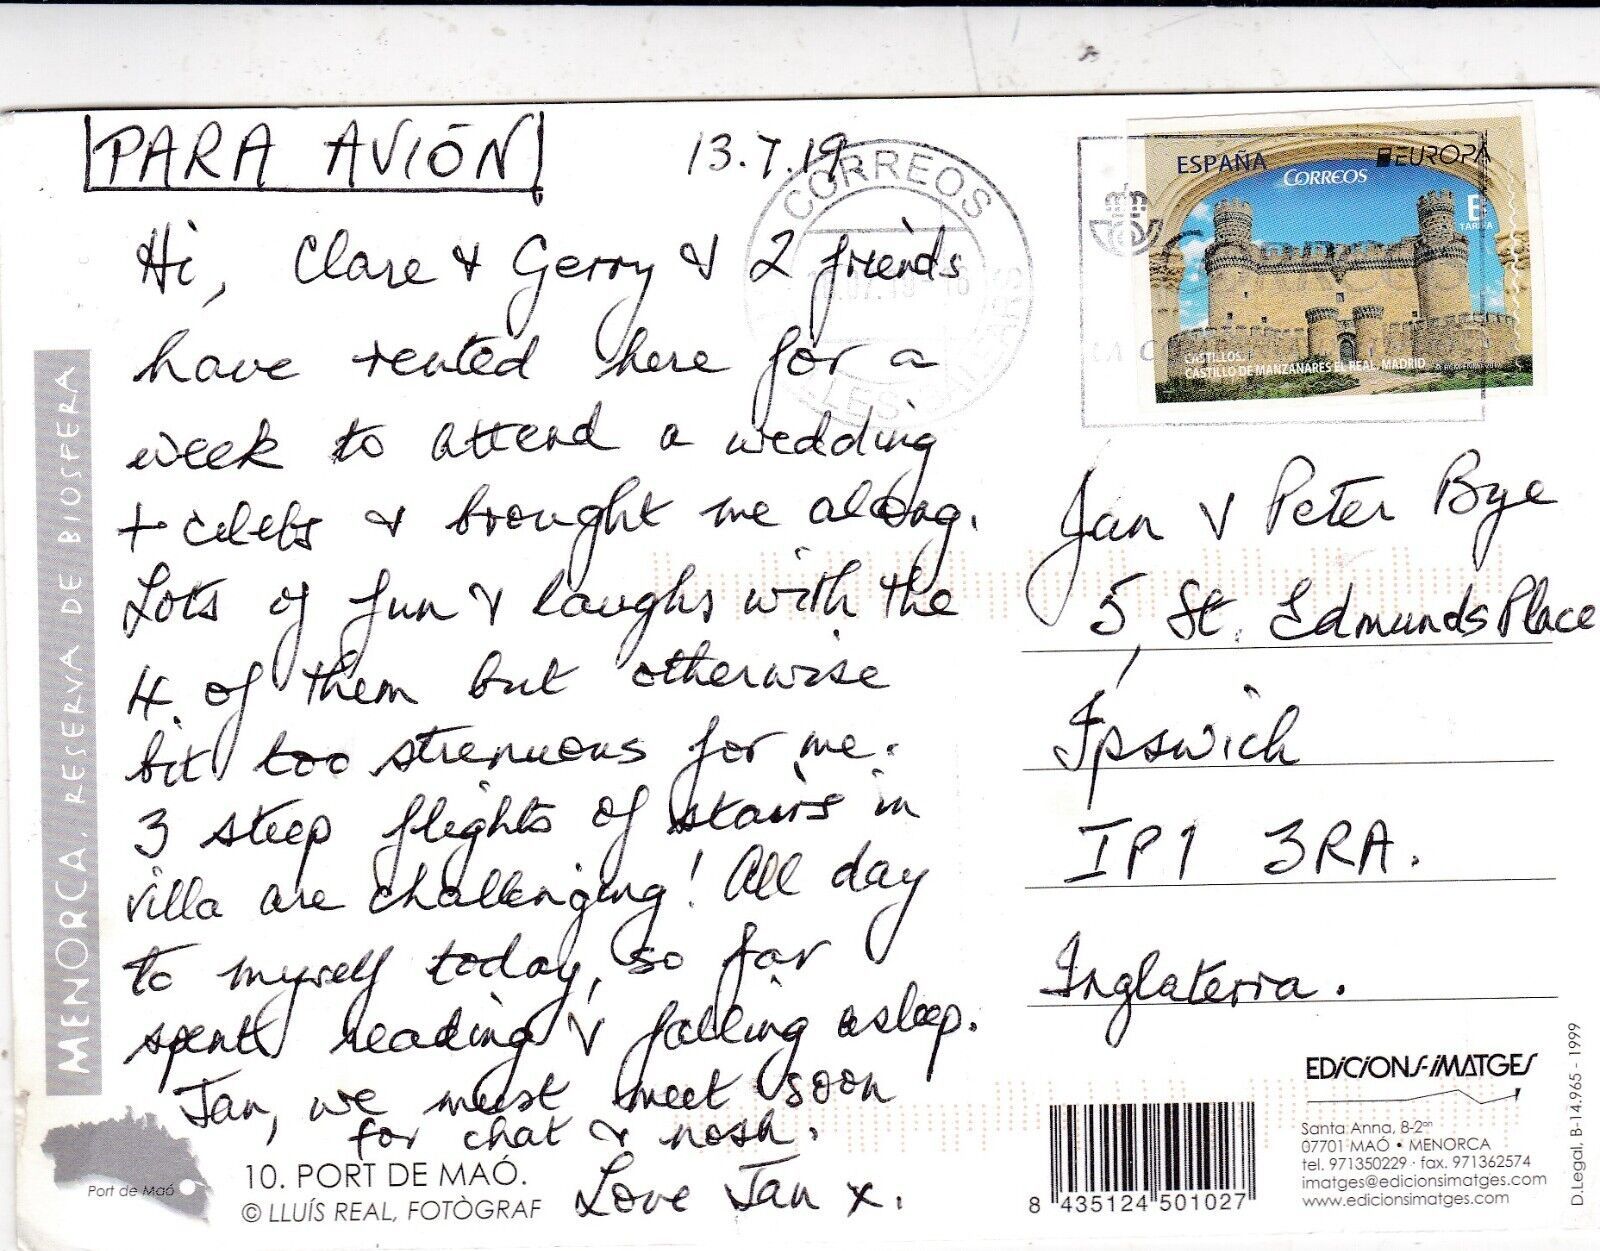 PARA AVIÓN
13.7.19.
Hi, Clare & Gerry & 2 friends
have rented here for a
week to attend a wedding
+ celebs & brought me along.
Lots of fun & laughs with the
4 of them but otherwise
bit too strenuous for me.
3 steep flights of stairs in
villa are challenging! All day
to myself today, so far
spent reading & falling asleep.
Jan, we must meet soon
for chat & nosh.
Love Jan x.
MENORCA, RESERVA DE BIOSFERA
Port de Maó
10. PORT DE MAÓ.
© LLUÍS REAL, FOTÒGRAF
CORREOS
ESPAÑA
EUROPA
CORREOS
E
TARIFA
CASTILLOS.
CASTILLO DE MANZANARES EL REAL. MADRID
Jan & Peter Bye
5, St. Edmunds Place
Ipswich
IP1 3RA.
Inglaterra.
EDICIONS-IMATGES
Santa Anna, 8-2on
07701 MAÓ • MENORCA
tel. 971350229 · fax. 971362574
imatges@edicionsimatges.com
www.edicionsimatges.com
8 435124 501027
D.Legal, B-14.965 - 1999